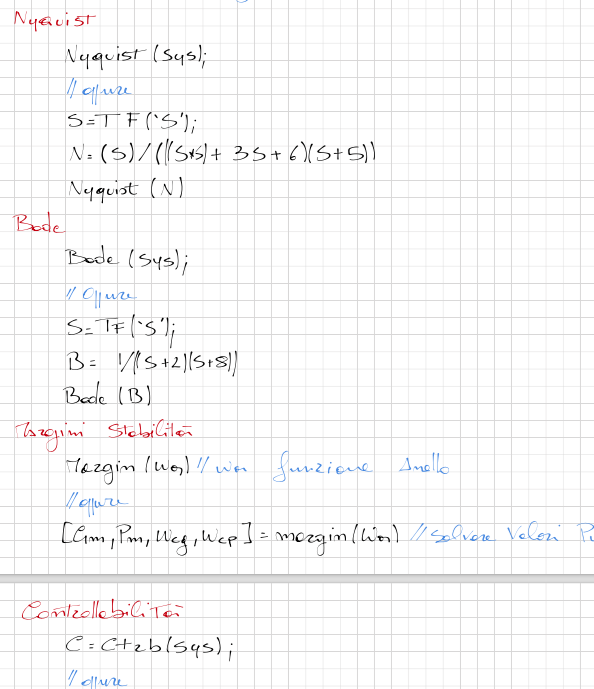 Nyquist
Nyquist (Sys);
// oppure
S=TF('S');
N=(S)/(((S*S)+3S+6)(S+5))
Nyquist (N)
Bode
Bode (Sys);
// oppure
S=TF('S');
B= 1/((S+2)(S+8))
Bode (B)
Margini Stabilità
Margin (Wa) // Wa funzione Anello
// oppure
[Gm, Pm, Wcg, Wcp] = margin(Wa) // Salvare Valori
Controllabilità
C=Ctrb(sys);
// oppure